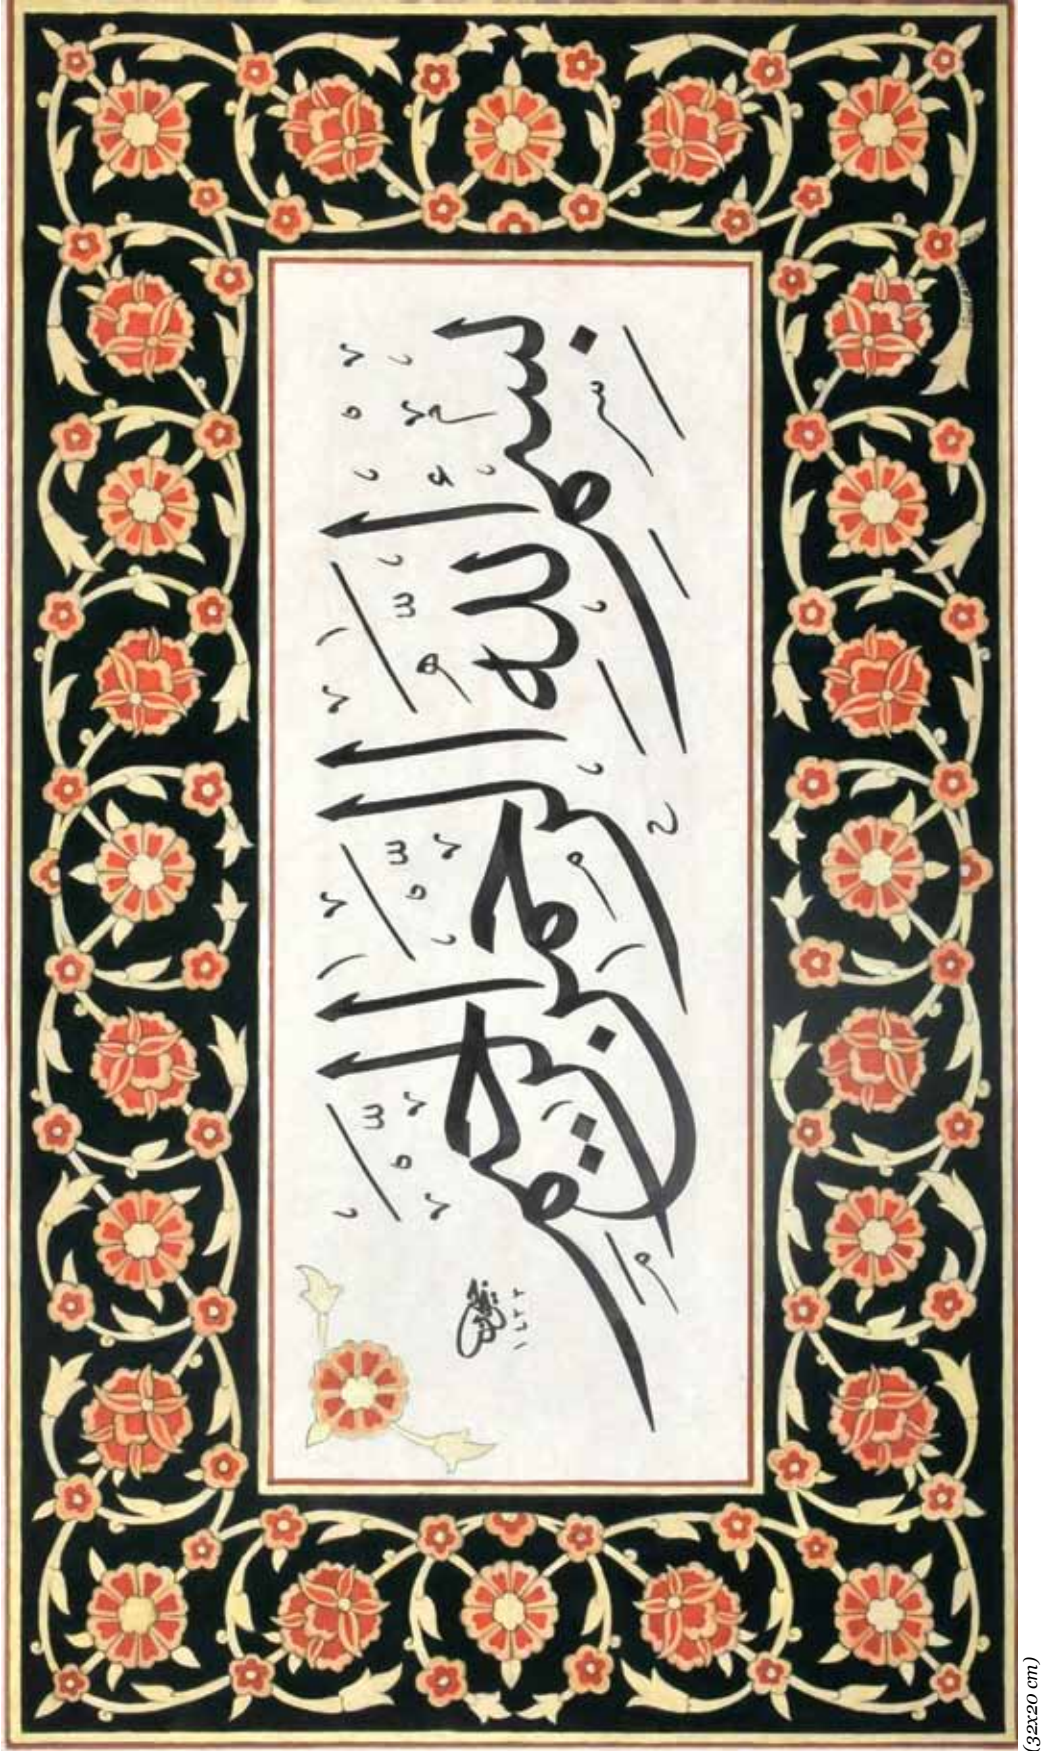 بِسْمِ اللهِ الرَّحْمٰنِ الرَّحِيمِ
١٤٣٣
(32x20 cm)